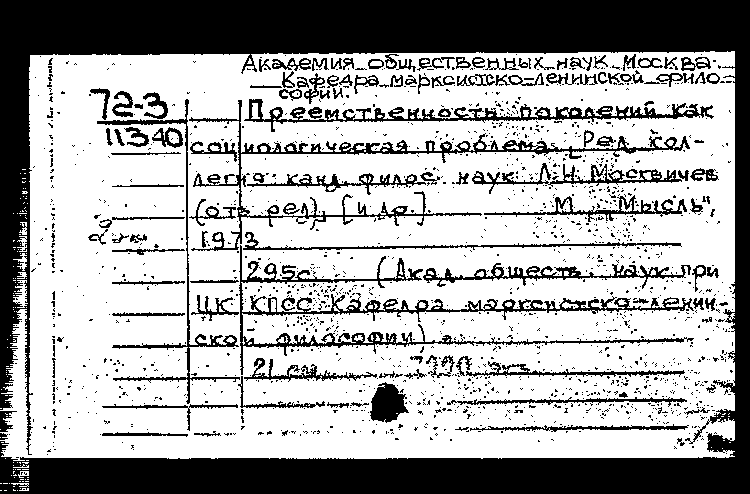 Академия общественных наук Москва.
Кафедра марксистско-ленинской фило-
софии.
72-3
11340
Преемственность поколений как
социологическая проблема. [Ред. кол-
легия: канд. филос. наук Л.Н. Москвичев
(отв. ред), [и др.] М., "Мысль",
1973
295с. (Акад. обществ. наук при
ЦК КПСС Кафедра марксистско-ленин-
ской философии)
21 см. экз.